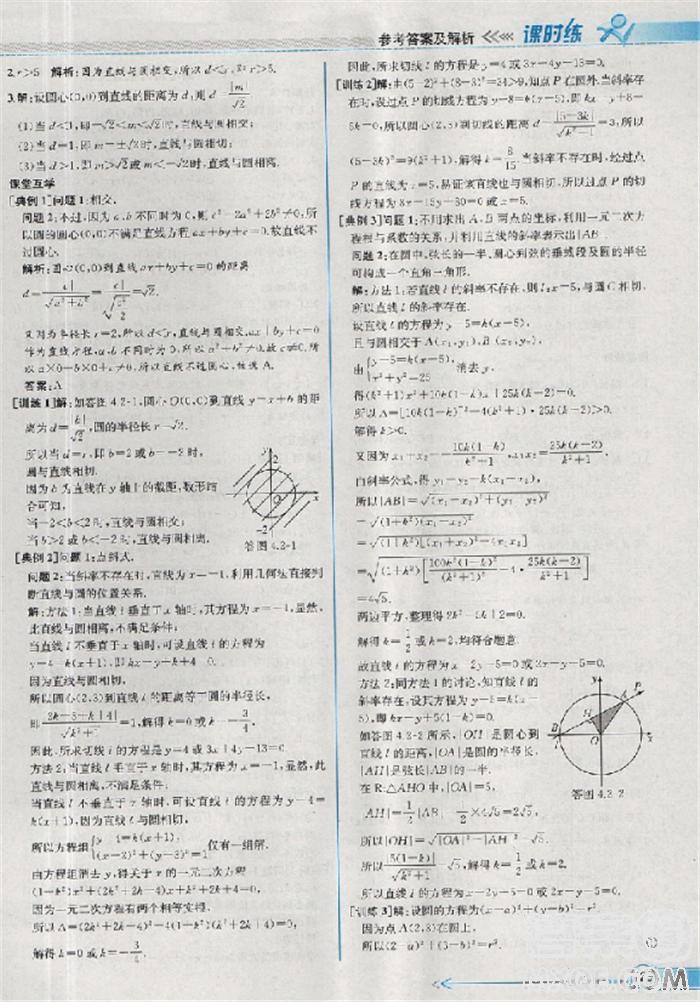 参考答案及解析
课时练
2.r>5 解析:因为直线与圆相交,所以d<r,即r>5.
3.解:设圆心(0,0)到直线的距离为d,则d=|m|/√2
(1)当d<1,即-√2<m<√2时,直线与圆相交;
(2)当d=1,即m=±√2时,直线与圆相切;
(3)当d>1,即m>√2或m<-√2时,直线与圆相离.
课堂互学
[典例1]问题1:相交.
问题2:不过,因为a,b不同时为0,则c²=2a²+2b²≠0,所
以圆的圆心(0,0)不满足直线方程ax+by+c=0.故直线不
过圆心.
解析:圆心(0,0)到直线ax+by+c=0的距离
又因为半径长r=2,所以d<r,直线与圆相交,ax+by+c=0
作为直线方程,a,b不同时为0,所以a²+b²≠0,故c≠0,所
以a×0+b×0+c≠0,所以直线不过圆心,故选A.
答案:A
[训练1]解:如答图4.2-1,圆心O(0,0)到直线y=x+b的距
离为d=|b|/√2,圆的半径长r=√2.
所以当d=r,即b=2或b=-2时,
圆与直线相切.
因为b为直线在y轴上的截距,数形结
合可知,
当-2<b<2时,直线与圆相交;
当b>2或b<-2时,直线与圆相离.
y
2
x
O
-2
答图4.2-1
[典例2]问题1:点斜式.
问题2:当斜率不存在时,直线为x=-1,利用几何法直接判
断直线与圆的位置关系.
解:方法1:当直线l垂直于x轴时,其方程为x=-1,显然,
此直线与圆相离,不满足条件;
当直线l不垂直于x轴时,可设直线l的方程为
y-4=k(x+1),即kx-y+k+4=0.
因为直线与圆相切,
所以圆心(2,3)到直线l的距离等于圆的半径长,
即|2k-3+k+4|/√(k²+1)=1,解得k=0或k=-3/4.
因此,所求切线l的方程是y=4或3x+4y-13=0.
方法2:当直线l垂直于x轴时,其方程为x=-1,显然,此
直线与圆相离,不满足条件;
当直线l不垂直于x轴时,可设直线l的方程为y-4=
k(x+1),因为直线l与圆相切,
所以方程组{y-4=k(x+1), (x-2)²+(y-3)²=1仅有一组解.
由方程组消去y,得关于x的一元二次方程
(1+k²)x²+(2k²+2k-4)x+k²+2k+4=0.
因为一元二次方程有两个相等实根,
所以Δ=(2k²+2k-4)²-4(1+k²)(k²+2k+4)=0,
解得k=0或k=-3/4.
因此,所求切线l的方程是y=4或3x+4y-13=0.
[训练2]解:由(5-2)²+(8-3)²=34>9,知点P在圆外.当斜率存
在时,设过点P的切线方程为y-8=k(x-5),即kx-y+8-
5k=0,所以圆心(2,3)到切线的距离d=|5-3k|/√(k²+1)=3,所以
(5-3k)²=9(k²+1),解得k=8/15.当斜率不存在时,经过点
P的直线为x=5,易证该直线也与圆相切,所以过点P的切
线方程为8x-15y+80=0或x=5.
[典例3]问题1:不用求出A,B两点的坐标,利用一元二次方
程根与系数的关系,并利用直线的斜率表示出|AB|.
问题2:在圆中,弦长的一半、圆心到弦的垂线段及圆的半径
可构成一个直角三角形.
解:方法1:若直线l的斜率不存在,则l:x=5,与圆C相切,
所以直线l的斜率存在.
设直线l的方程为y-5=k(x-5),
且与圆相交于A(x₁,y₁),B(x₂,y₂),
由{y-5=k(x-5), x²+y²=25 消去y,
得(k²+1)x²+10k(1-k)x+25k(k-2)=0.
所以Δ=[10k(1-k)]²-4(k²+1)·25k(k-2)>0.
解得k>0.
又因为x₁+x₂=-10k(1-k)/(k²+1),x₁x₂=25k(k-2)/(k²+1),
由斜率公式,得y₁-y₂=k(x₁-x₂),
所以|AB|=√((x₁-x₂)²+(y₁-y₂)²)
=√((1+k²)(x₁-x₂)²)
=√((1+k²)[(x₁+x₂)²-4x₁x₂])
=√((1+k²)[100k²(1-k)²/(k²+1)²-4·25k(k-2)/(k²+1)])
=4√5.
两边平方,整理得2k²-5k+2=0.
解得k=1/2或k=2,均符合题意.
故直线l的方程为x-2y+5=0或2x-y-5=0.
方法2:同方法1的讨论,知直线l的
斜率存在,设其方程为y-5=k(x-
5),即kx-y+5(1-k)=0.
如答图4.2-2所示,|OH|是圆心到
直线l的距离,|OA|是圆的半径长,
|AH|是弦长|AB|的一半.
在Rt△AHO中,|OA|=5,
|AH|=1/2|AB|=1/2×4√5=2√5,
y
P
A
H
B
O
x
答图4.2-2
所以|OH|=√(|OA|²-|AH|²)=√5.
所以|5(1-k)|/√(k²+1)=√5,解得k=1/2或k=2.
所以直线l的方程为x-2y+5=0或2x-y-5=0.
[训练3]解:设圆的方程为(x-a)²+(y-b)²=r².
因为点A(2,3)在圆上,
所以(2-a)²+(3-b)²=r².